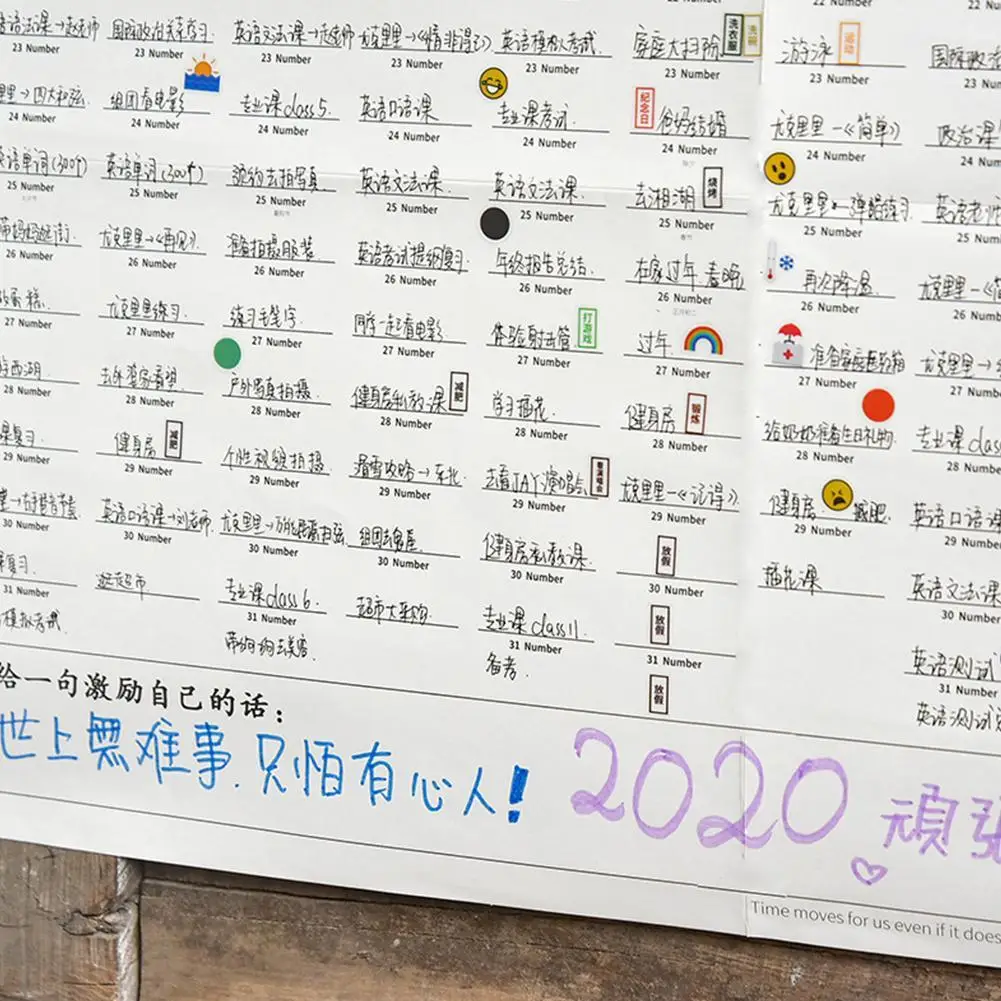 22 Number
22 Number
语法课→赵老师 国际政治关系学习 英语文法课→赵老师 尤克里里→《情非得已》 英语模拟考试 家庭大扫除 洗衣服 洗碗 游泳 运动 国际政治
23 Number 23 Number 23 Number 23 Number 23 Number 23 Number 23 Number
里→四大和弦 组团看电影 专业课class 5. 英语口语课 专业课考试 纪念日 爸妈结婚 尤克里里→《简单》 政治课
24 Number 24 Number 24 Number 24 Number 24 Number 24 Number 24 Number 24 Num
英语单词(300个) 英语单词(300个) 预约去拍写真 英语文法课 英语文法课 去湘湖 烧烤 尤克里里 弹唱练习 英语老师
25 Number 25 Number 25 Number 25 Number 25 Number 25 Number 25 Number 25 Num
带妈妈逛街 尤克里里→《再见》 准备拍摄服装 英语考试提纲复习 年终报告总结 在家过年 春晚 再次降温 尤克里里→《简
26 Number 26 Number 26 Number 26 Number 26 Number 26 Number 26 Number 26 Num
蛋糕 尤克里里练习 练习毛笔字 同学一起看电影 体验射击馆 打游戏 过年 准备家庭医药箱 尤克里里→
27 Number 27 Number 27 Number 27 Number 27 Number 27 Number 27 Num
西湖 去外婆家看望 户外写真拍摄 健身房私教课 减肥 学习插花 健身房 锻炼 给奶奶准备生日礼物 专业课class
28 Number 28 Number 28 Number 28 Number 28 Number 28 Number 28 Number 28 Num
课复习 健身房 减肥 个性视频拍摄 滑雪攻略→东北 去看JAY演唱会 看演唱会 尤克里里→《记得》 健身房 减肥 英语口语课
29 Number 29 Number 29 Number 29 Number 29 Number 29 Number 29 Number 29 Num
英语口语课→刘老师 尤克里里→万能 扫弦 组团去鬼屋 健身房私教课 放假 插花课 英语文法课
30 Number 30 Number 30 Number 30 Number 30 Number 30 Number 30 Num
复习 逛超市 专业课class 6. 超市大采购 专业课class 11. 放假 英语测试
31 Number 31 Number 31 Number 31 Number 31 Num
模拟考试 带狗狗去美容 备考 放假 英语测试
给一句激励自己的话：
世上無难事.只怕有心人!
2020 顽张
Time moves for us even if it does